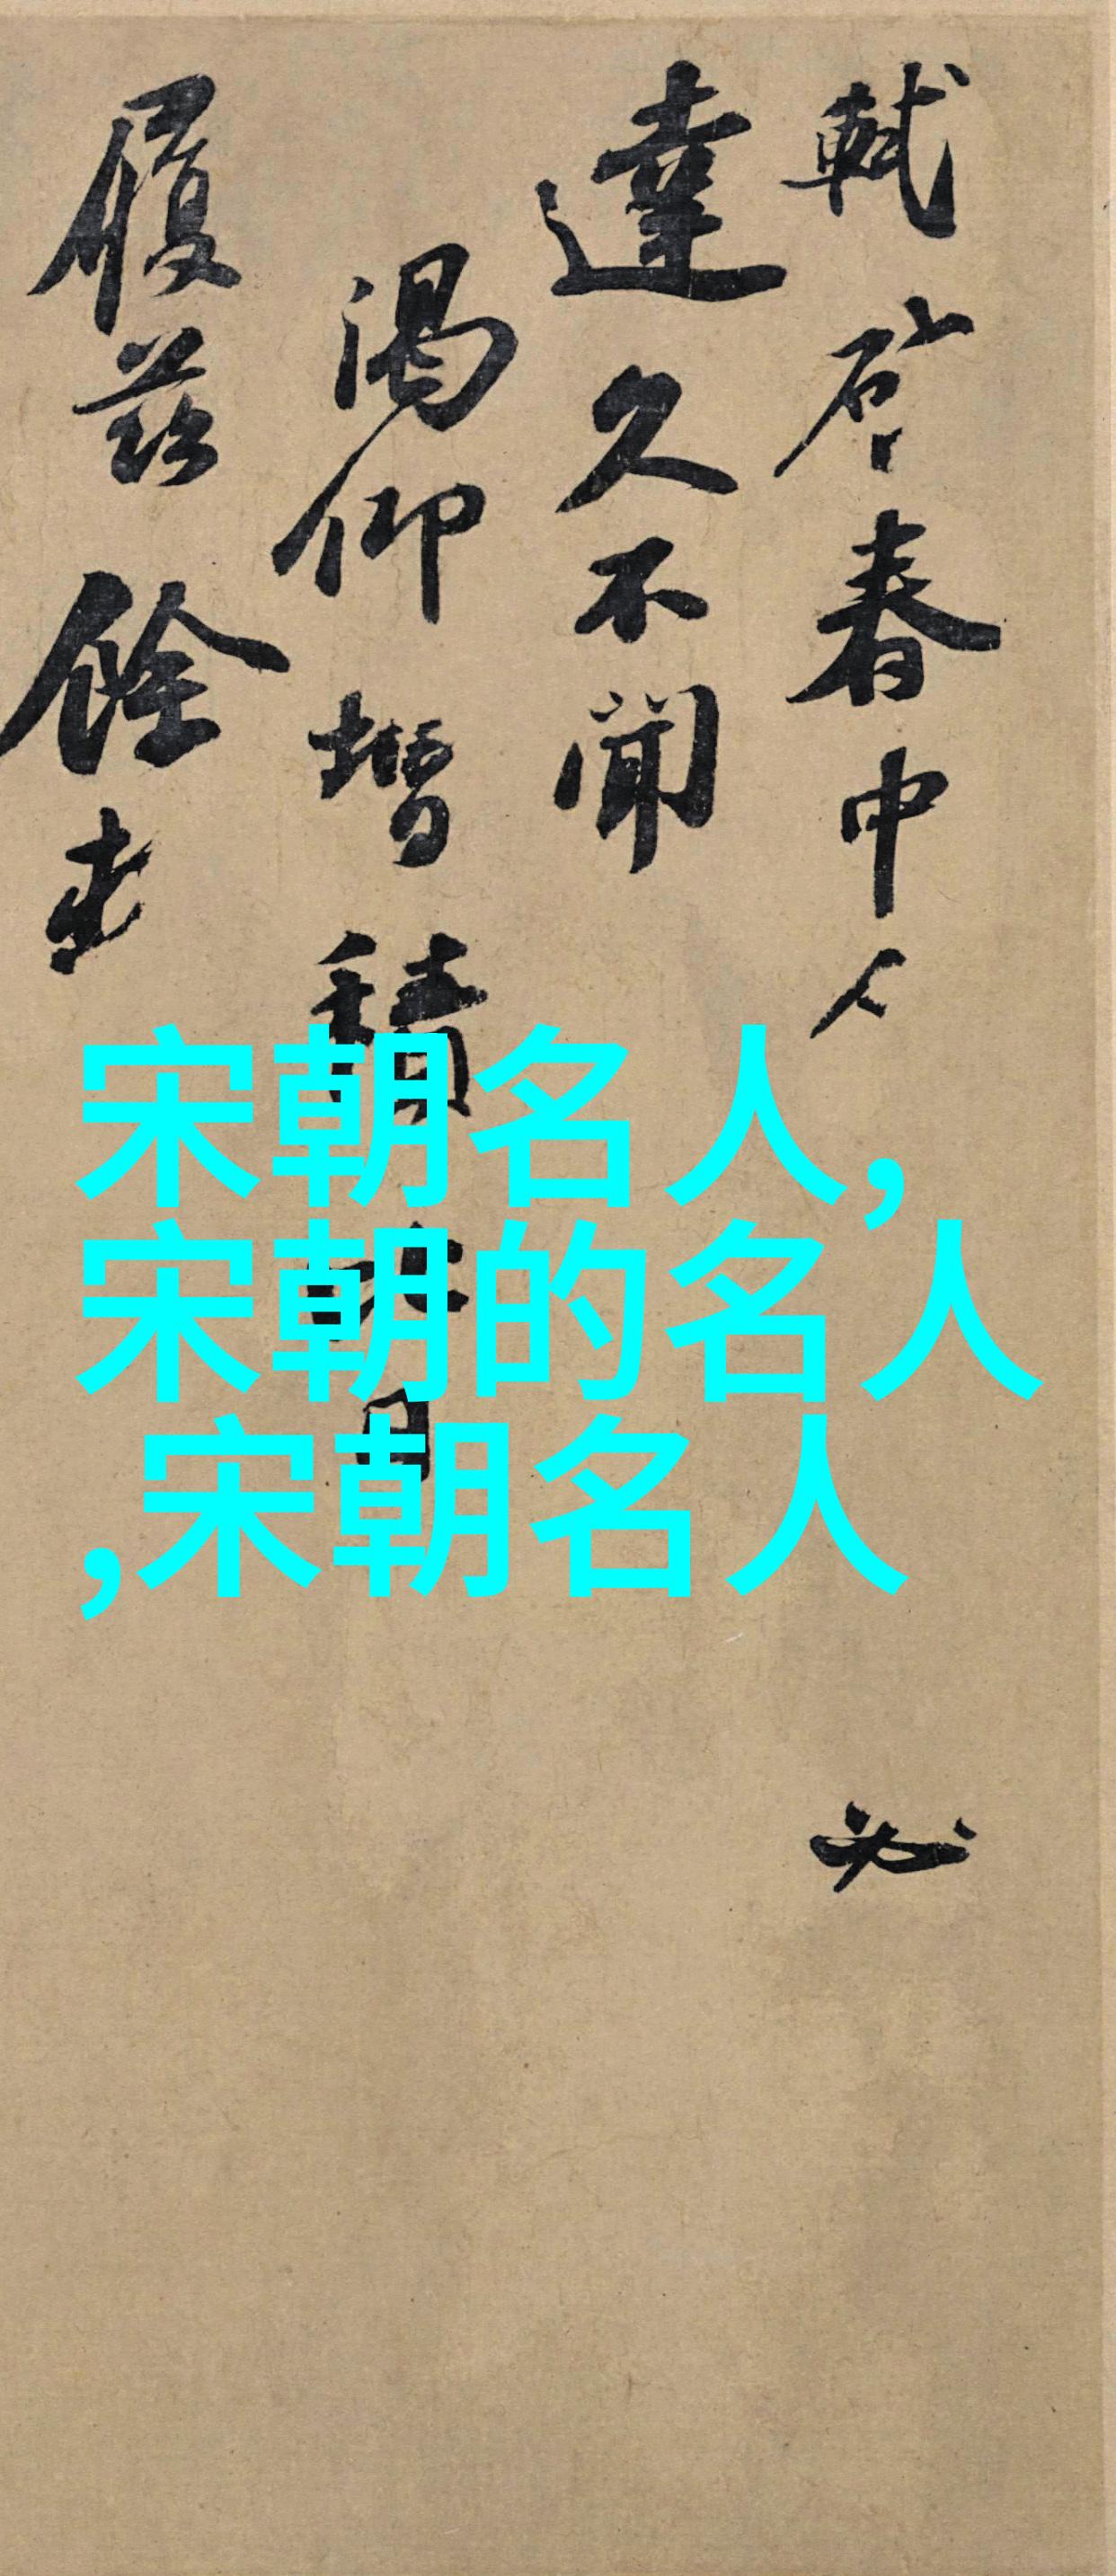 軾啓春中人必
達久不聞
渴仰增積日
履茲餘
宋朝名人,
宋朝的名人
,宋朝名人